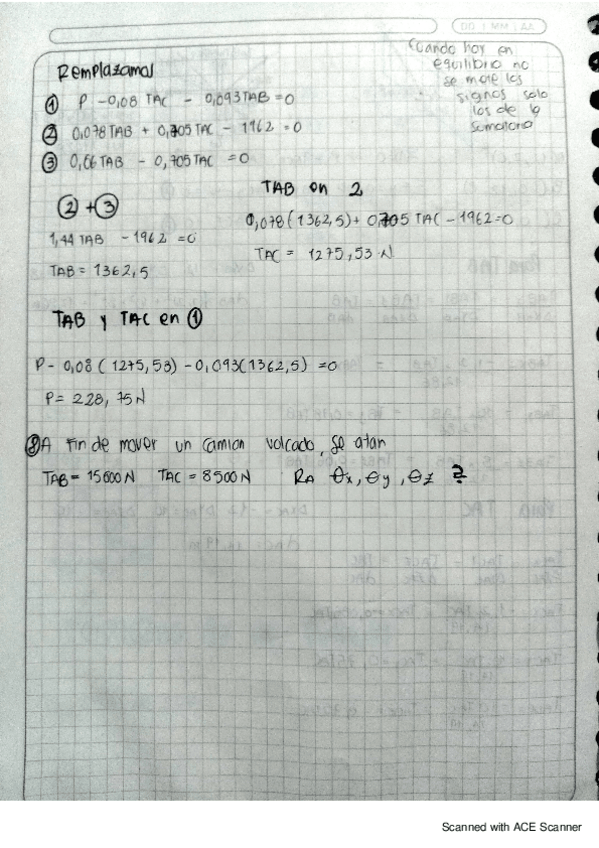 DD MM AA
Cuando hoy en
equilibrio no
se mare los
signos solo
los de la
sumatoria
Remplazamos
① P - 0,08 TAC - 0,093TAB = 0
② 0,078TAB + 0,705TAC - 1962 = 0
③ 0,66TAB - 0,705TAC = 0
② + ③
1,44 TAB - 1962 = 0
TAB = 1362,5
TAB en 2
0,078(1362,5) + 0,705 TAC - 1962 = 0
TAC = 1275,53 N
TAB y TAC en ①
P - 0,08 (1275,53) - 0,093(1362,5) = 0
P = 228,75N
⑧ A fin de mover un camion volcado, se atan
TAB = 15600N TAC = 8500N RA θx, θy, θz ?
Scanned with ACE Scanner